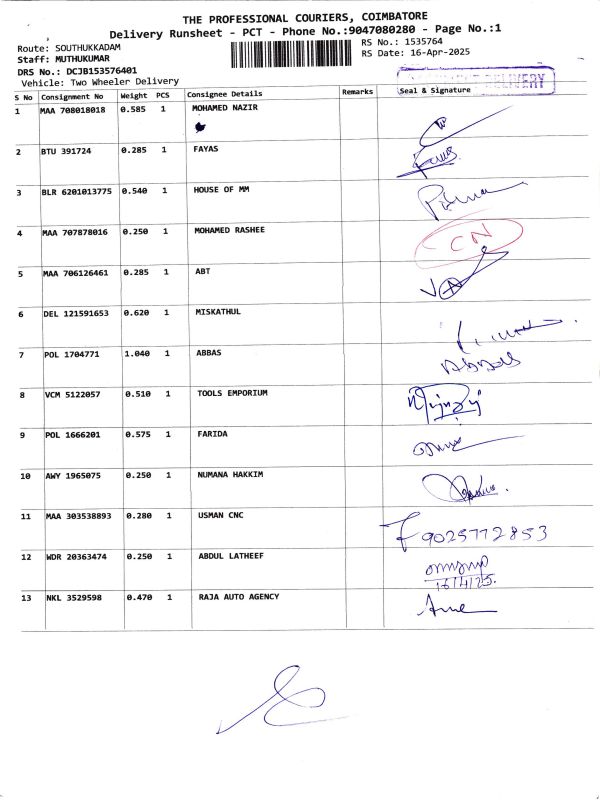 THE PROFESSIONAL COURIERS, COIMBATORE
Delivery Runsheet - PCT - Phone No.:9047080280 - Page No.:1
Route: SOUTHUKKADAM RS No.: 1535764
Staff: MUTHUKUMAR RS Date: 16-Apr-2025
DRS No.: DCJB153576401
Vehicle: Two Wheeler Delivery
DELIVERY
S No Consignment No Weight PCS Consignee Details Remarks Seal & Signature
1 MAA 708018018 0.585 1 MOHAMED NAZIR
2 BTU 391724 0.285 1 FAYAS
3 BLR 6201013775 0.540 1 HOUSE OF MM
4 MAA 707878016 0.250 1 MOHAMED RASHEE CN
5 MAA 706126461 0.285 1 ABT
6 DEL 121591653 0.620 1 MISKATHUL
7 POL 1704771 1.040 1 ABBAS
8 VCM 5122057 0.510 1 TOOLS EMPORIUM
9 POL 1666201 0.575 1 FARIDA
10 AWY 1965075 0.250 1 NUMANA HAKKIM
11 MAA 303538893 0.280 1 USMAN CNC 9025772853
12 WDR 20363474 0.250 1 ABDUL LATHEEF
16/4/25.
13 NKL 3529598 0.470 1 RAJA AUTO AGENCY